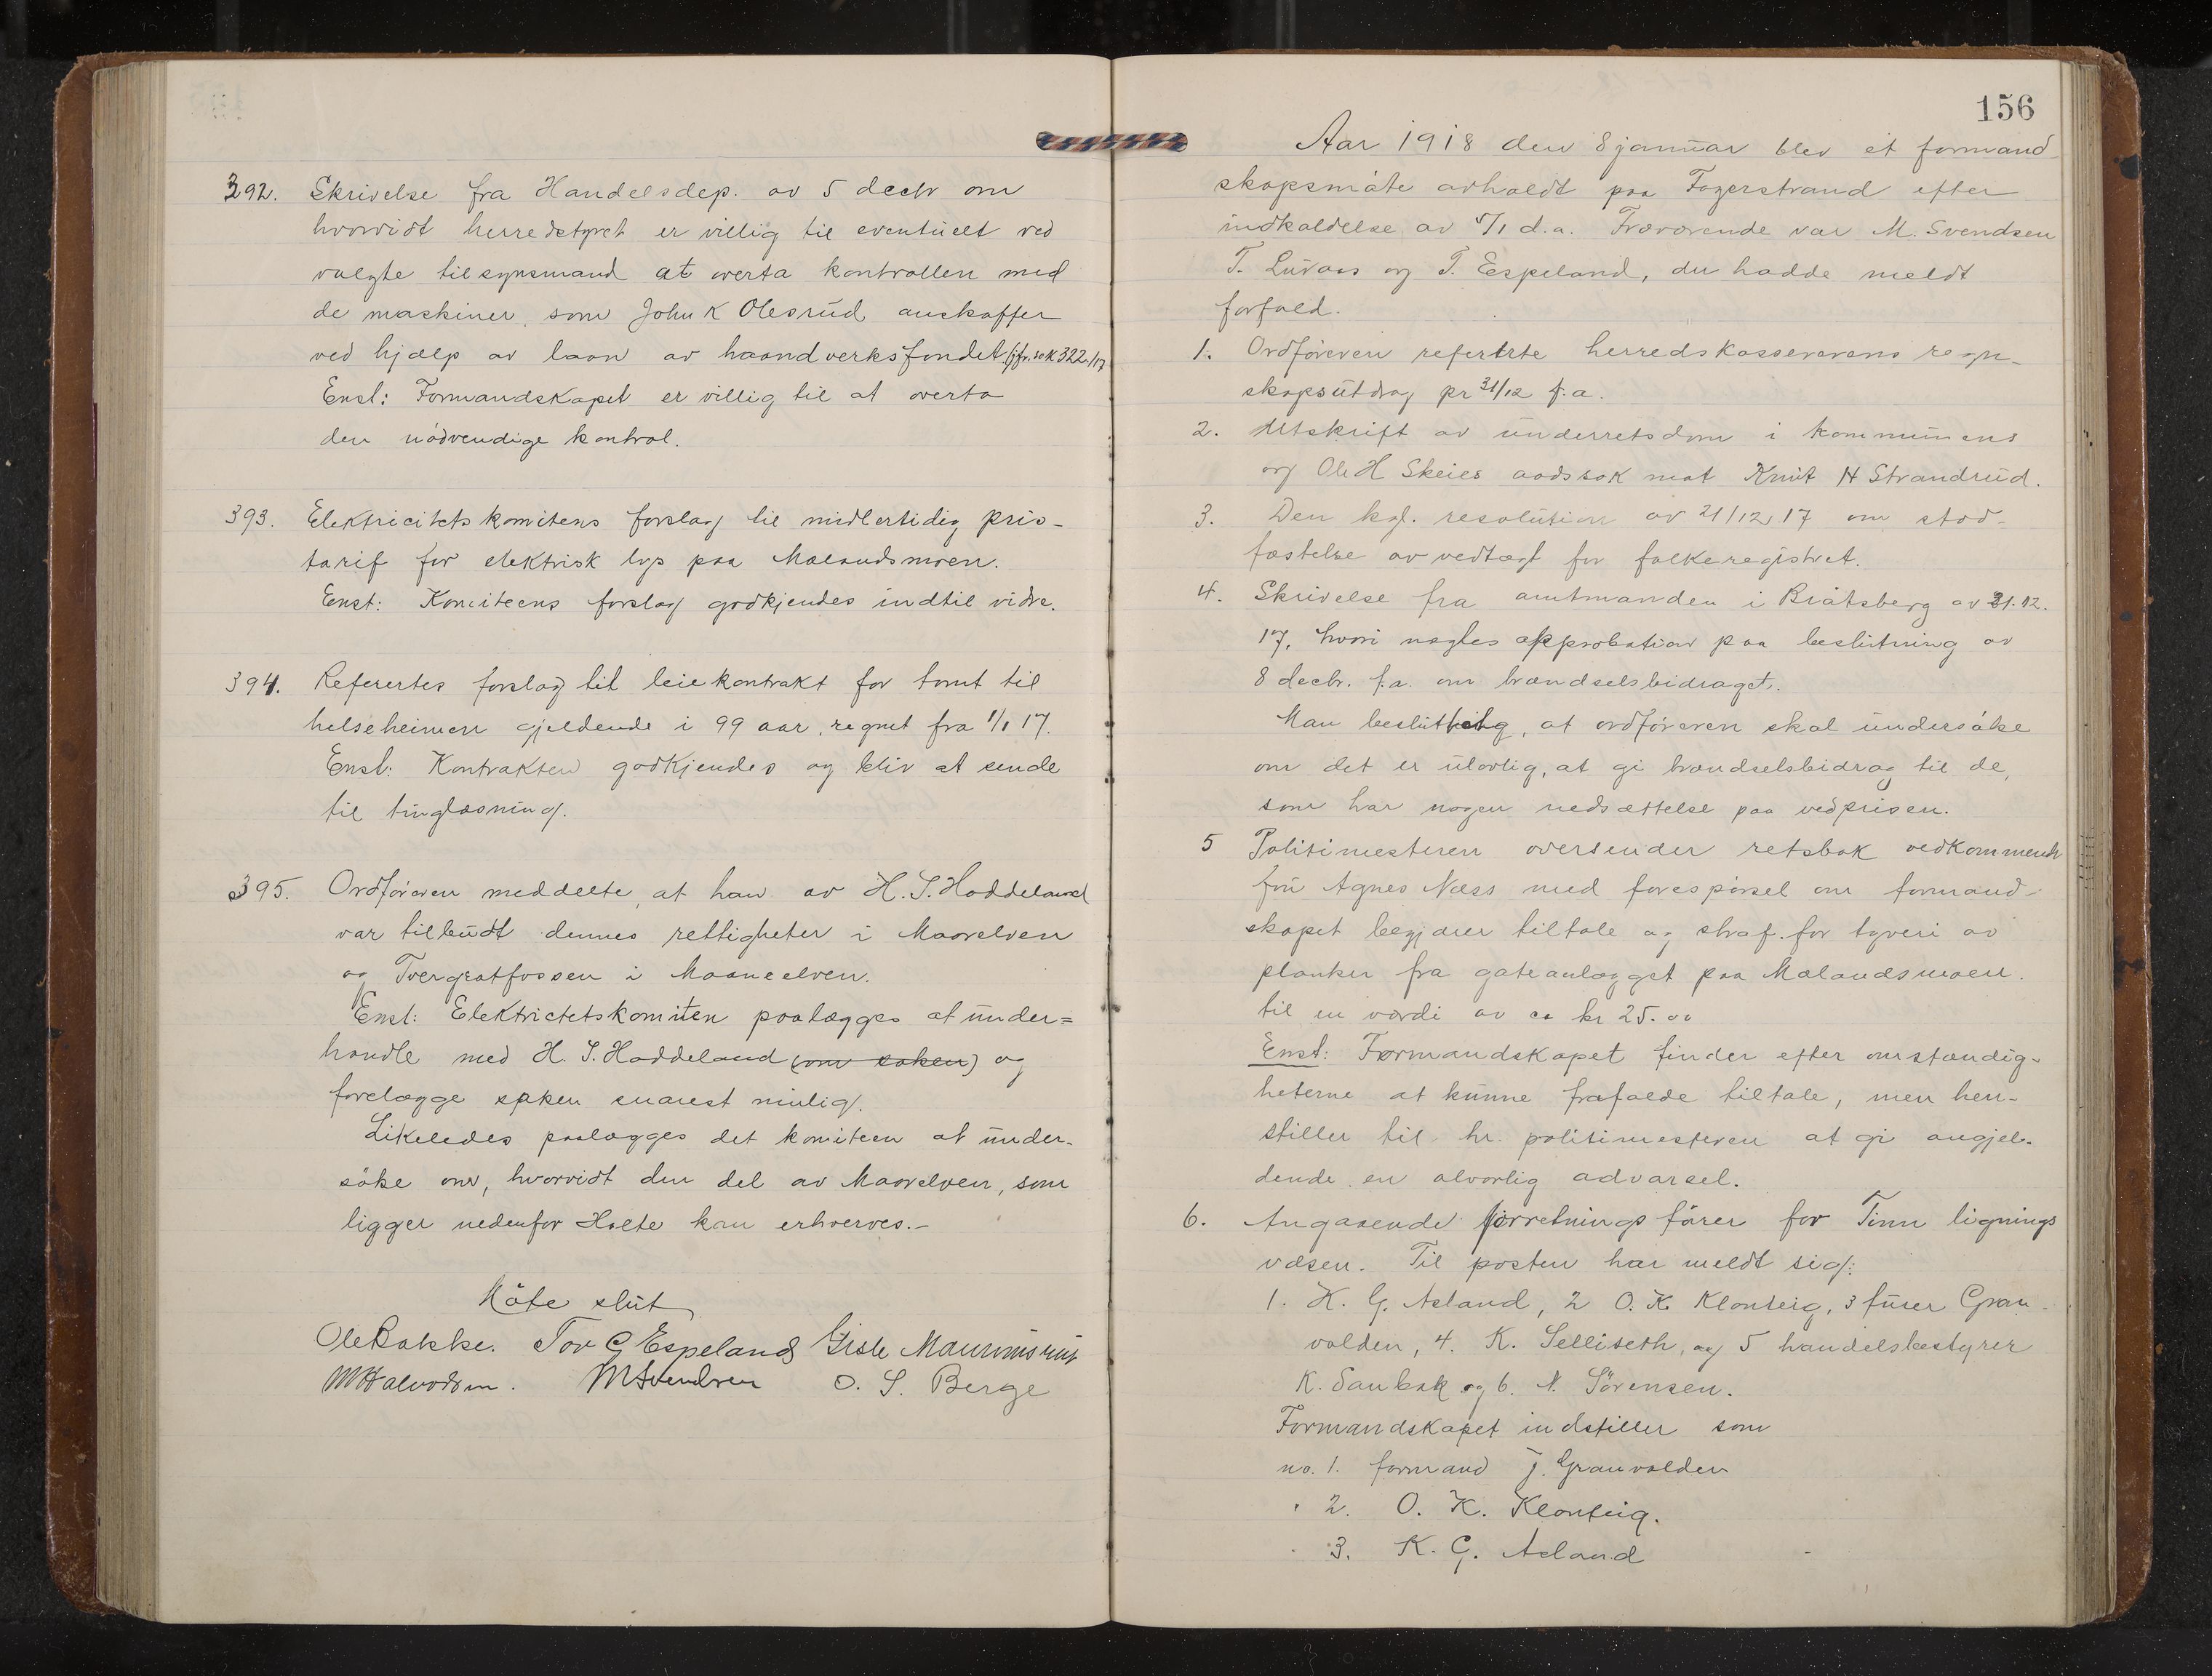 392. Skrivelse fra Handelsdep. av 5 decbr om
hvorvidt herredstyret er villig til eventuelt ved
valgte tilsynsmand at overta kontrollen med
de maskiner, som John K Olesrud anskaffer
ved hjælp av laan av haandverksfondet (jfr. sak 322/17
Enst: Formandskapet er villig til at overta
den nödvendige kontrol.
393. Elektricitetskomitens forslag til midlertidig pris-
tarif for elektrisk lys paa Mælandsmoen.
Enst: Komiteens forslag godkjendes indtil vidre.
394. Referertes forslag til leiekontrakt for tomt til
helseheimen gjeldende i 99 aar, regnet fra 1/1 17.
Enst: Kontrakten godkjendes og bliv at sende
til tinglæsning.
395. Ordföreren meddelte, at han av H. S. Haddeland
var tilbudt dennes rettigheter i Maarelven
og Tvergrotfossen i Maaneelven.
Enst: Elektrictetskomiten paalægges at under=
handle med H. S. Haddeland (om saken) og
forelægge saken snarest mulig.
Likeledes paalægges det komiteen at under-
söke om, hvorvidt den del av Maarelven, som
ligger nedenfor Holte kan erhverves.-
Möte slut
Ole Bakke. Tor G Espeland Gisle
MHalvorsen. MSvendsen O. S. Berge
156
Aar 1918 den 8 januar blev et formand-
skapsmöte avholdt paa Fagerstrand efter
indkaldelse av 5/1 d.a. Fraværende var M. Svendsen
T. Luraas og T. Espeland, der hadde meldt
forfald.
1. Ordföreren refererte herredskassererens regn-
skapsutdrag pr 31/12 f.a.
2. Utskrift av underretsdom i kommunens
og Ole H Skeies aadssak mot Knut H Strandrud.
3. Den kgl. resolution av 21/12 17 om stad-
fæstelse av vedtægt for folkeregistret.
4. Skrivelse fra amtmanden i Bratsberg av 31.12.
17, hvori nægtes approbation paa beslutning av
8 decbr. f.a. om brændselsbidraget.
Man besluttet, at ordföreren skal undersöke
om det er ulovlig, at gi brændselsbidrag til de,
som har nogen nedsættelse paa vedprisen.
5 Politimesteren oversender retsbok vedkommende
fru Agnes Næss med forespörsel om formand-
skapet begjærer tiltale og straf for tyveri av
planker fra gateanlægget paa Mælandsmoen.
til en værdi av ca kr 25.00
Enst: Formandskapet finder efter omstændig-
heterne at kunne frafalde tiltale, men hen-
stiller til hr. politimesteren at gi angjel-
dende en alvorlig advarsel.
6. Angaaende forretningsförer for Tinn lignings
væsen. Til posten har meldt sig:
1. K. G. Asland, 2 O. K. Klonteig, 3 furer Gran-
volden, 4. K. Selliseth, og 5 handelsbestyrer
K. Sanbak og 6. N. Sörensen.
Formandskapet indstiller som
no. 1. formand J. Granvolden
" 2. O. K. Klonteig.
" 3. K. G. Asland